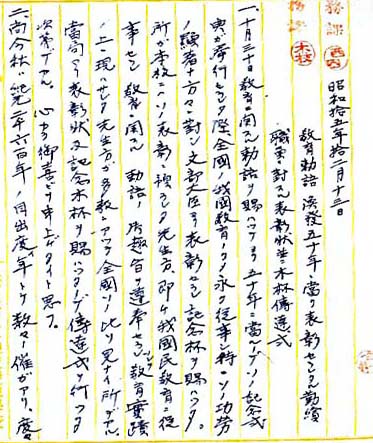 昭和拾五年拾二月十三日
教育勅語渙発五十年ニ当リ表彰セラレタル勤続
職員ニ対スル表彰状並ニ木杯伝達式
一、十月三十日教育ニ関スル勅語ヲ賜ハツテヨリ五十年ニ当ルノデソノ記念式
典ガ挙行セラレタ際全国ノ我国教育ノタメ永ク従事シ特ニソノ功労
ノ顕著ナ方々ニ対シ文部大臣ヨリ表彰セラレ記念杯ヲ賜ハツタ。
所ガ本校ニソノ表彰ヲ得ラレタ先生方、即チ我国民教育ニ従
事セラレ教育ニ関スル勅語ノ御趣旨ヲ遵奉セラレ教育ニ業蹟
ノ上ニ現ハサレタ先生方ガ多数アツテ全国ソノ比ヲ見ナイ所デアル
当局ヨリ表彰状及記念木杯ヲ賜ハツタノデ伝達式ヲ行フタ
次第デアル 心カラ御喜ビヲ申上ゲタイト思フ。
二、尚今秋ハ紀元二千六百年ノ目出度イ年トテ数々ノ催ガアリ、度々